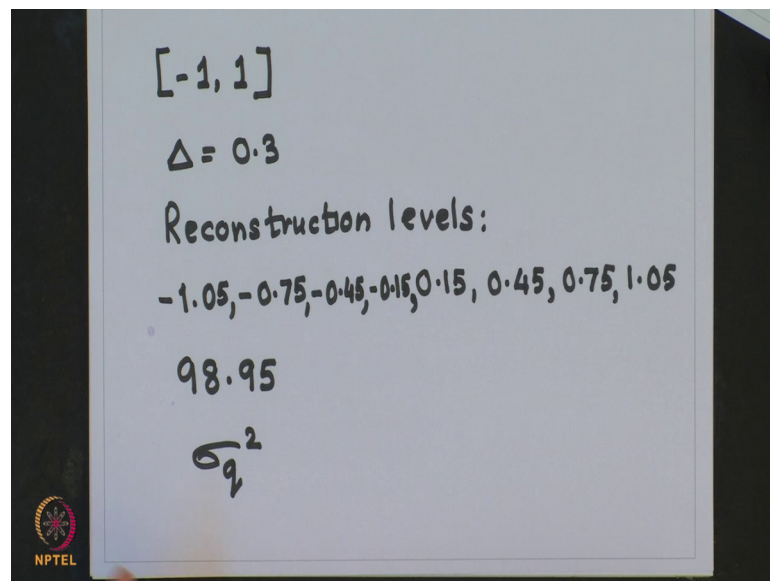 [-1, 1]
Δ = 0.3
Reconstruction levels:
-1.05, -0.75, -0.45, -0.15, 0.15, 0.45, 0.75, 1.05
98.95
σq²
NPTEL